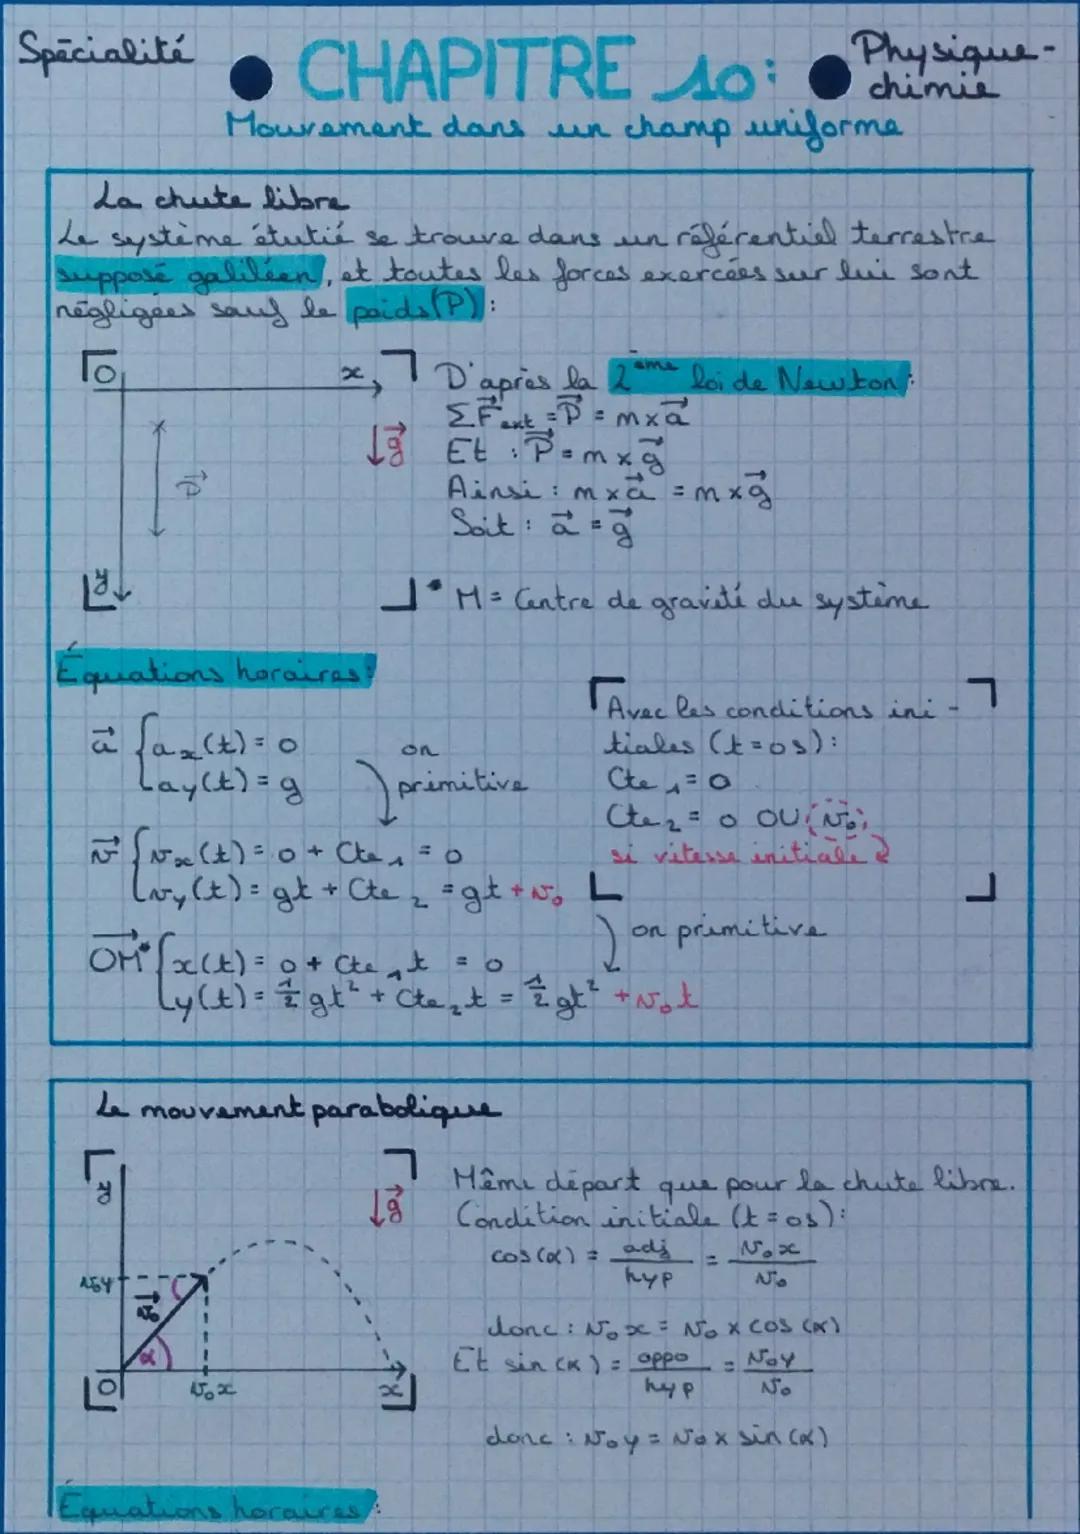 Spécialité
CHAPITRE 10:
Physique-
chimie
Mouvement dans un champ uniforme
La chute libre
Le système étutié se trouve dans un référentiel terrestre
supposé galiléen, et toutes les forces exercées sur lui sont
négligées sauf le poids (P):
O x
g
P
y
D'après la 2ème loi de Newton:
ΣF ext = P = m x a
Et : P = m x g
Ainsi : m x a = m x g
Soit : a = g
* M = Centre de gravité du système
Équations horaires:
a { ax(t) = 0
ay(t) = g
on
primitive
Avec les conditions ini-
tiales (t=0s):
Cte 1 = 0
Cte 2 = 0 OU v0
si vitesse initiale
v { vx(t) = 0 + Cte 1 = 0
vy(t) = gt + Cte 2 = gt + v0
on primitive
OM* { x(t) = 0 + Cte 1 t = 0
y(t) = 1/2 gt² + Cte 2 t = 1/2 gt² + v0 t
Le mouvement parabolique
y
g
v0y
v0
α
O
v0x
x
Même départ que pour la chute libre.
Condition initiale (t=0s):
cos(α) = adj/hyp = v0x/v0
donc : v0x = v0 x cos(α)
Et sin(α) = oppo/hyp = v0y/v0
donc : v0y = v0 x sin(α)
Équations horaires: